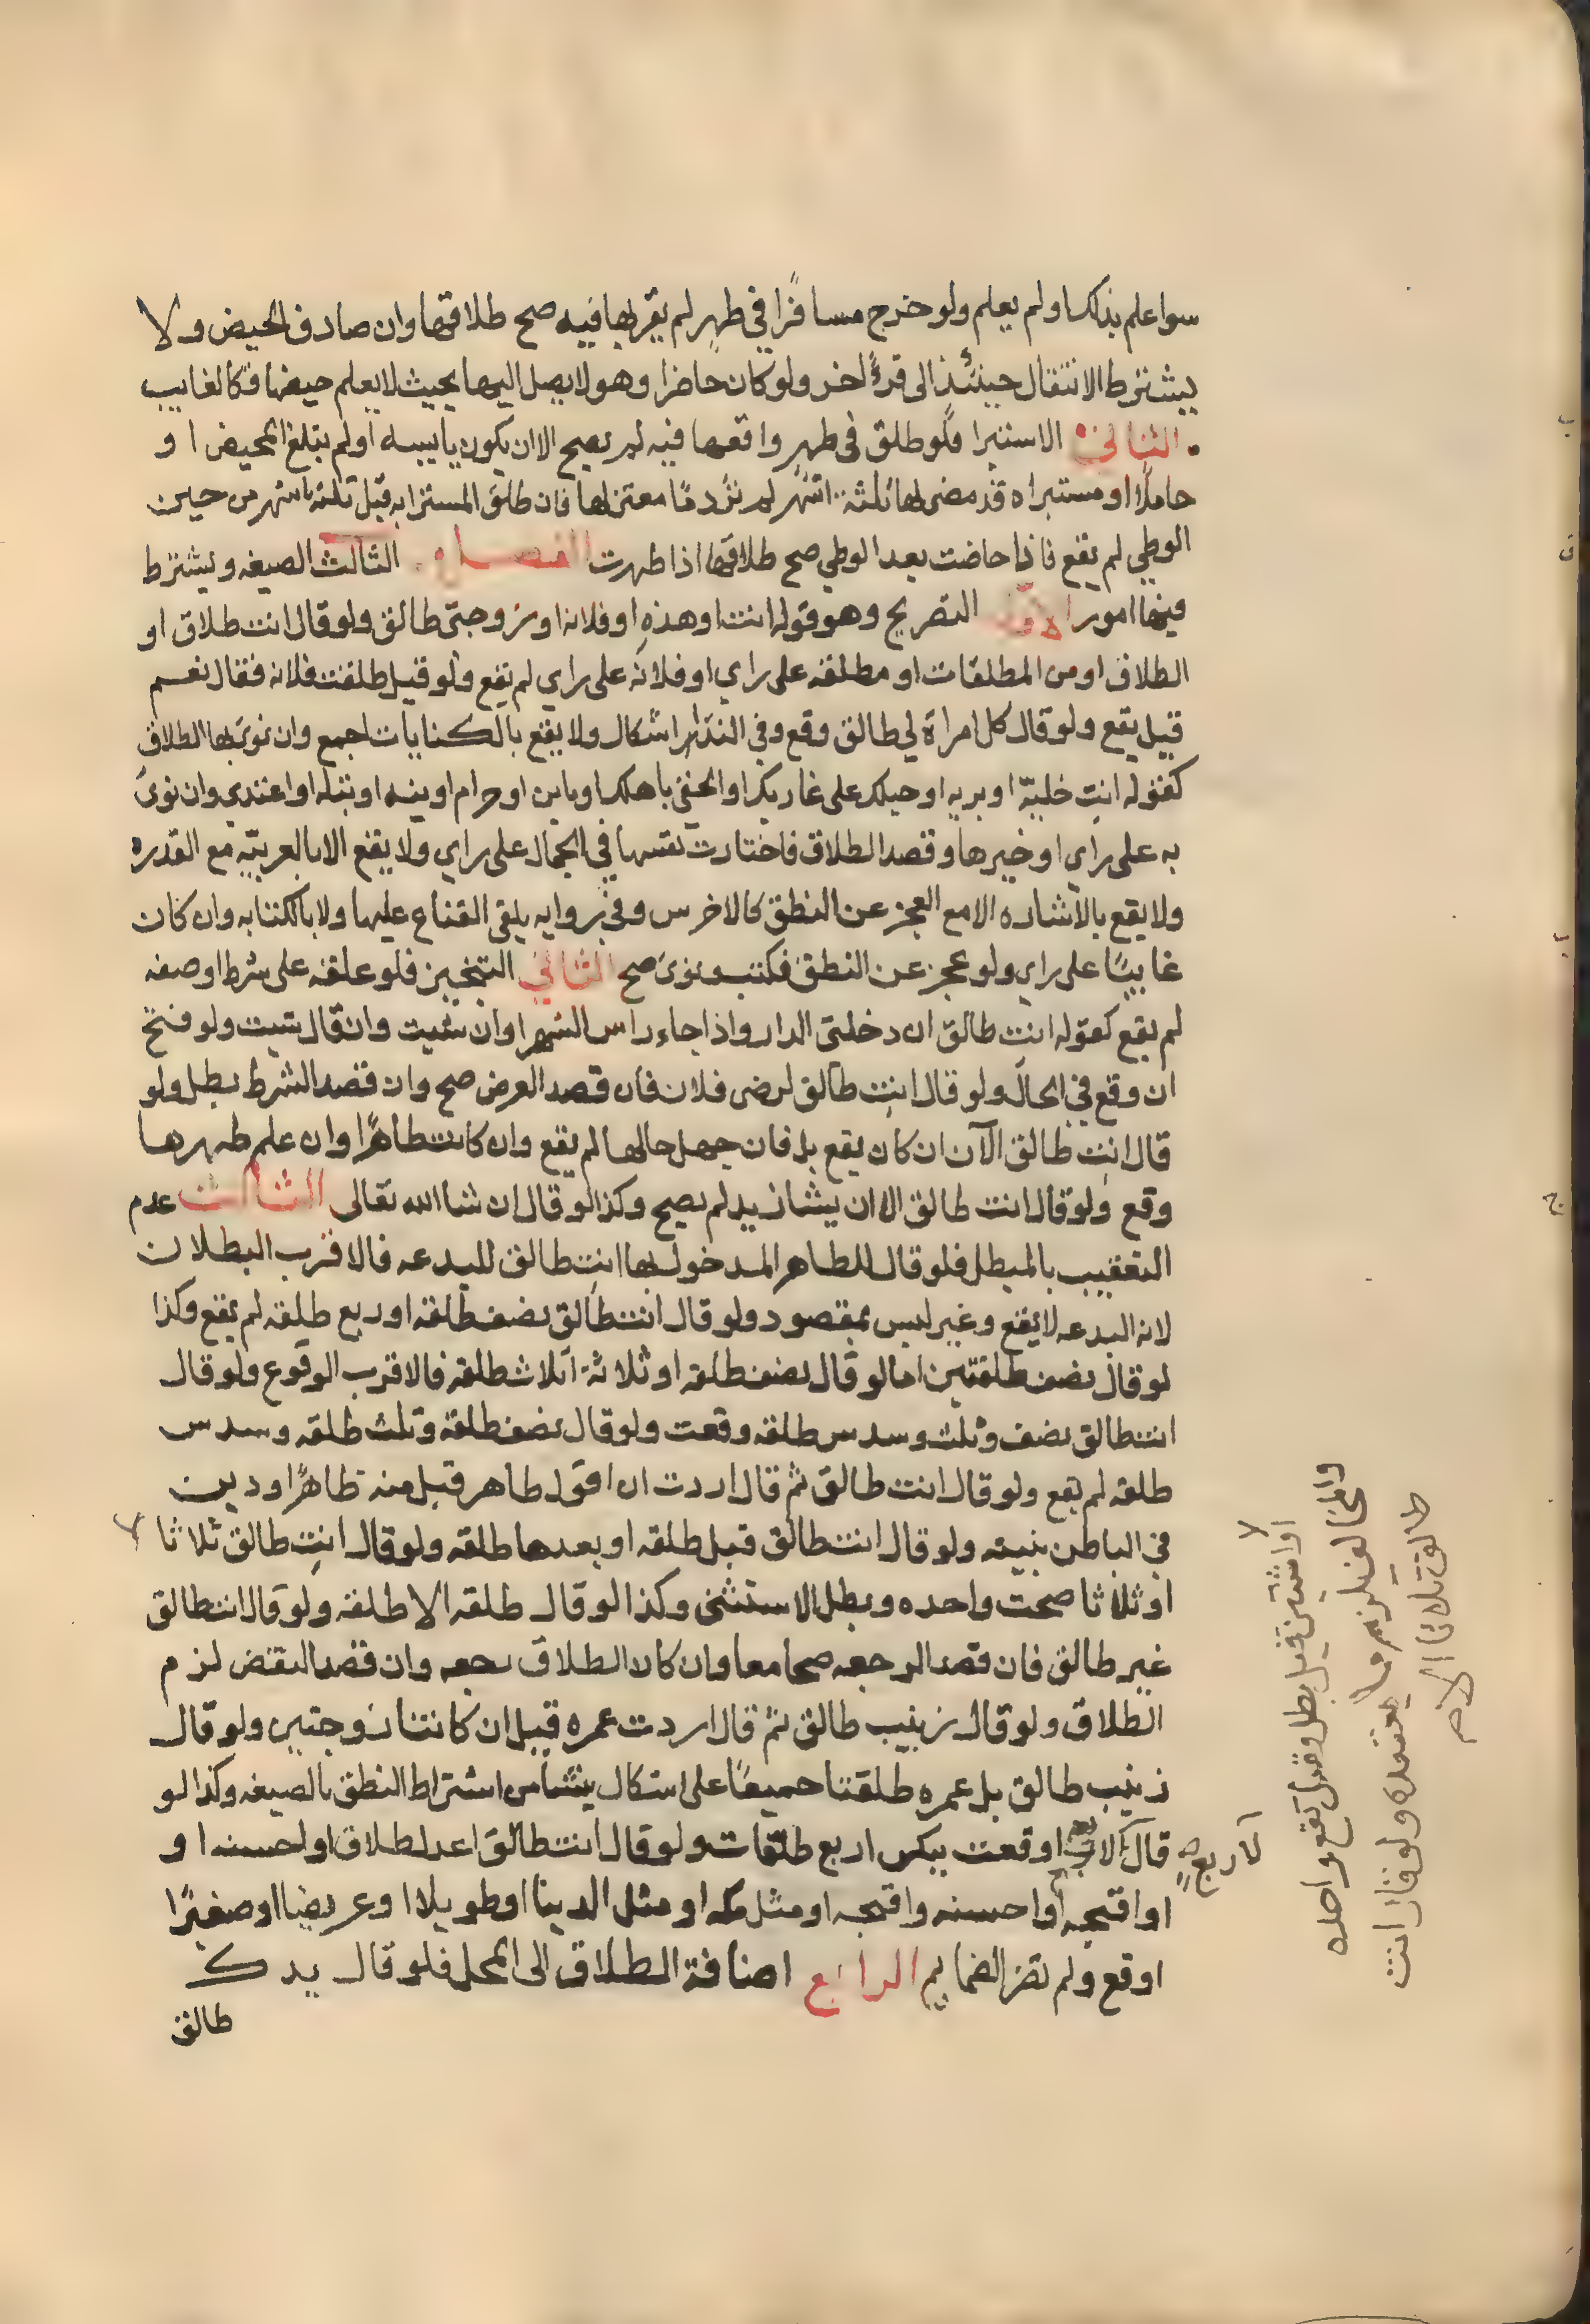 سوا علم بذلك او لم يعلم ولو خرج مسافرًا في طهرٍ لم يقربها فيه صح طلاقها وان صادف الحيض ولا
يشترط الانتقال حينئذٍ الى قرءٍ اخر ولو كان حاضرا وهو لا يصل اليها بحيث لا يعلم حيضها فكالغايب
الثاني الاستبرا فلو طلق في طهرٍ واقعها فيه لم يصح الا ان يكون يايسه او لم يبلغ المحيض او
حاملًا او مستبراه قد مضى لها ثلثة اشهر لم تر دمًا معتزلها فان طلق المسترابه قبل ثلثه اشهر من حين
الوطي لم يقع فاذا حاضت بعد الوطي صح طلاقها اذا طهرت الفصل الثالث الصيغه ويشترط
فيها امور الاول التصريح وهو قوله انت او هذه او فلانه او زوجتي طالق ولو قال انت طلاق او
الطلاق او من المطلقات او مطلقه على راي او فلانه على راي لم يقع ولو قيل طلقت فلانه فقال نعم
قيل يقع ولو قال كل امراة لي طالق وقع وفي الندا اشكال ولا يقع بالكنايات اجمع وان نوى بها الطلاق
كقوله انتِ خليّة او بريه او حبلك على غاربك او الحقي باهلك او باين او حرام او بته او بتله او اعتدي وان نوى
به على راي او خيرها وقصد الطلاق فاختارت نفسها في الحال على راي ولا يقع الا بالعربيّه مع القدره
ولا يقع بالاشاره الا مع العجز عن النطق كالاخرس وفي روايه يلقي القناع عليها ولا بالكتابه وان كان
غايبًا على راي ولو عجز عن النطق فكتب ونوى صح الثاني التنجيز فلو علقه على شرط او صفه
لم يقع كقوله انت طالق ان دخلتي الدار واذا جاء راس الشهر او ان شيت وان قال شيت ولو فتح
ان وقع في الحال ولو قال انتِ طالق لرضى فلان فان قصد الغرض صح وان قصد الشرط بطل ولو
قال انتِ طالق الآن ان كان يقع بك فان جهل حالها لم يقع وان كانت طاهرًا وان علم طهرها
وقع ولو قال انت طالق الا ان يشا زيد لم يصح وكذا لو قال ان شا الله تعالى الثالث عدم
التعقيب بالمبطل فلو قال للطاهر المدخول بها انتِ طالق للبدعه فالاقرب البطلان
لان البدعه لا يقع وغير ليس بمقصود ولو قال انت طالق نصف طلقه او ربع طلقه لم يقع وكذا
لو قال نصف طلقتين اما لو قال نصف طلقه او ثلاثة اثلاث طلقه فالاقرب الوقوع ولو قال
انت طالق نصف وثلث وسدس طلقه وقعت ولو قال نصف طلقة وثلث طلقه وسدس
طلقه لم يقع ولو قال انت طالق ثم قال اردت ان اقول طاهر قبل منه ظاهرًا ودين
في الباطن بنيته ولو قال انت طالق قبل طلقه او بعدها طلقه ولو قال انتِ طالق ثلاثا
او ثلاثا صحت واحده وبطل الاستثنى وكذا لو قال طلقه الا طلقه ولو قال انت طالق
غير طالق فان قصد الرجعه صحا معا وان كان الطلاق رجعه وان قصد النقض لزم
الطلاق ولو قال زينب طالق ثم قال اردت عمره قبل ان كانتا زوجتين ولو قال
زينب طالق بل عمره طلقتا جميعًا على اشكال ينشا من اشتراط النطق بالصيغه وكذا لو
قال اوقعت بينكن اربع طلقات ولو قال انت طالق اعدل طلاق او احسنه او
او اقبحه او احسنه واقبحه او مثل مكه او مثل الدينا او طويلا او عريضا او صغيرًا
اوقع ولم تضر الضمايم الرابع اضافة الطلاق الى المحل فلو قال يدك
طالق
للاربع
او اثنتين قيل بطل وقيل تقع واحده
والمخالف يلزم ما يعتقده ولو قال انت
طالق ثلاثا الا